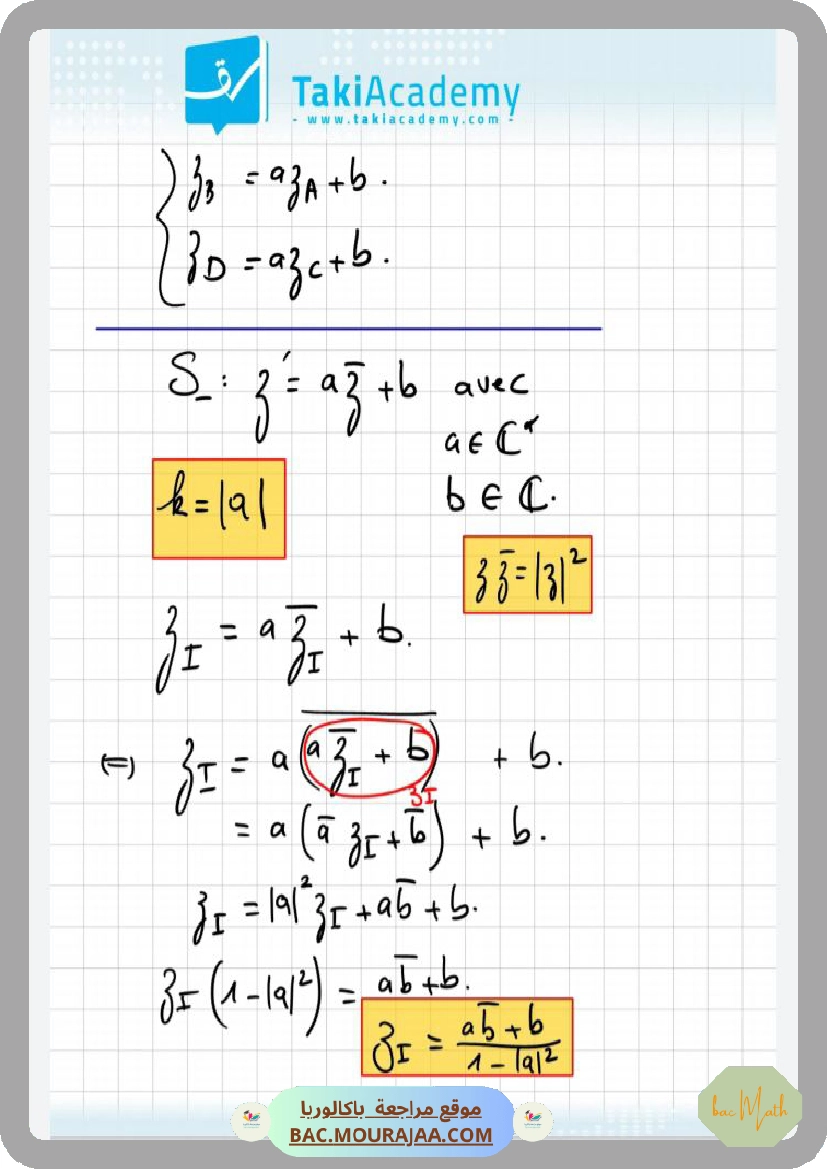 TakiAcademy
- www.takiacademy.com -
z_B = a z_A + b .
z_D = a z_C + b .
S_- : z' = a z̄ + b avec
a ∈ ℂ*
k = |a|
b ∈ ℂ.
z z̄ = |z|²
z_I = a z̄_I + b.
⇔ z_I = a \overline{(a z̄_I + b)} + b.
z_I
= a (ā z_I + b̄) + b.
z_I = |a|² z_I + a b̄ + b.
z_I (1 - |a|²) = a b̄ + b.
z_I = \frac{a b̄ + b}{1 - |a|²}
موقع مراجعة باكالوريا
BAC.MOURAJAA.COM
bac Math